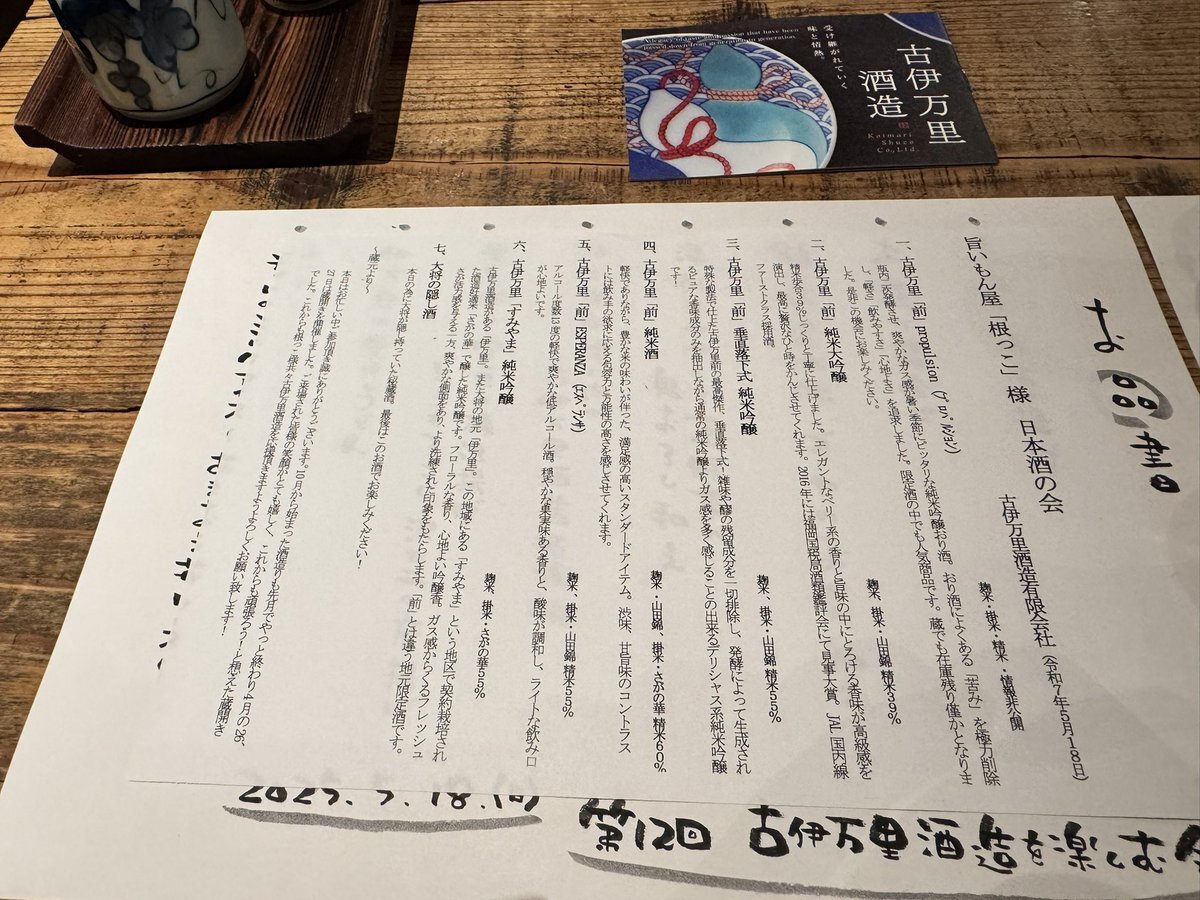 古伊万里
酒造
Koimari
Shuzo
Co.,Ltd.
受け継がれていく
味と情熱。
お品書
旨いもん屋「根っこ」様　日本酒の会
古伊万里酒造有限会社（令和7年5月18日）
一、古伊万里「前」propulsion
麹米・掛米・精米・情報非公開
瓶内二次発酵させ、爽やかなガス感が暑い季節にピッタリな純米吟醸おり酒。おり酒によくある「苦み」を極力削除
し、「軽さ」「飲みやすさ」「心地よさ」を追求しました。限定酒の中でも人気商品です。蔵でも在庫残り僅かとなりま
した。是非この機会にお楽しみください。
二、古伊万里「前」純米大吟醸
麹米、掛米・山田錦 精米39％
精米歩合39％じっくりと丁寧に仕上げました。エレガントなベリー系の香りと旨味の中にとろける香味が高級感を
演出し、最高に贅沢なひと時をかんじさせてくれます。2016年には福岡国税局酒類鑑評会にて見事大賞。JAL国内線
ファーストクラス採用酒。
三、古伊万里「前」垂直落下式 純米吟醸
麹米、掛米・山田錦 精米55％
特殊な製法で仕上た古伊万里前の最高傑作、垂直落下式！雑味や醪の残留成分を一切排除し、発酵によって生成され
るピュアな香味成分のみを抽出しながら通常の純米吟醸よりガス感を多く感じることの出来るデリシャス系純米吟醸
です！
四、古伊万里「前」純米酒
麹米・山田錦、掛米・さがの華 精米60％
軽快でありながら、豊かな米の味わいが伴った、満足感の高いスタンダードアイテム。渋味、甘旨味のコントラス
トには飲み手の欲求に応える包容力と万能性の高さを感じさせてくれます。
五、古伊万里「前」ESPERANZA（エスペランサ）
麹米、掛米・山田錦 精米55％
アルコール度数13度の軽快で爽やかな低アルコール酒。穏やかな果実味ある香りと、酸味が調和し、ライトな飲み口
が心地よいです。
六、古伊万里「すみやま」純米吟醸
麹米、掛米・さがの華55％
古伊万里酒造がある「伊万里」。また大将の地元「伊万里」。この地域にある「すみやま」という地区で契約栽培され
た酒造好適米「さがの華」で醸した純米吟醸です。フローラルな香り、心地よい吟醸香。ガス感からくるフレッシュ
さが活力感を与える一方、爽やかな側面をあり、より洗練された印象をもたらします。「前」とは違う地元限定酒です。
七、大将の隠し酒
本日の為に大将が隠し持っていた秘蔵酒。最後はこのお酒でお楽しみください！
～蔵元より～
本日はお忙しい中ご参加頂き誠にありがとうございます。10月から始まった酒造りも先月でやっと終わり4月の26、
27日は蔵開きを開催しました。ご来場された皆様の笑顔がとても嬉しく、これからも頑張ろう！と想えた蔵開き
でした。これからも根っこ様共々古伊万里酒造を応援頂きますようよろしくお願い致します！
第12回 古伊万里酒造を楽しむ
2025.5.18.